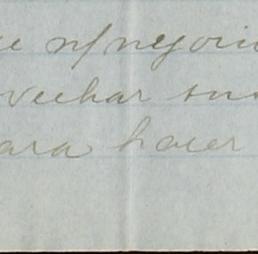 e n/negoci
vechar su
ara hacer